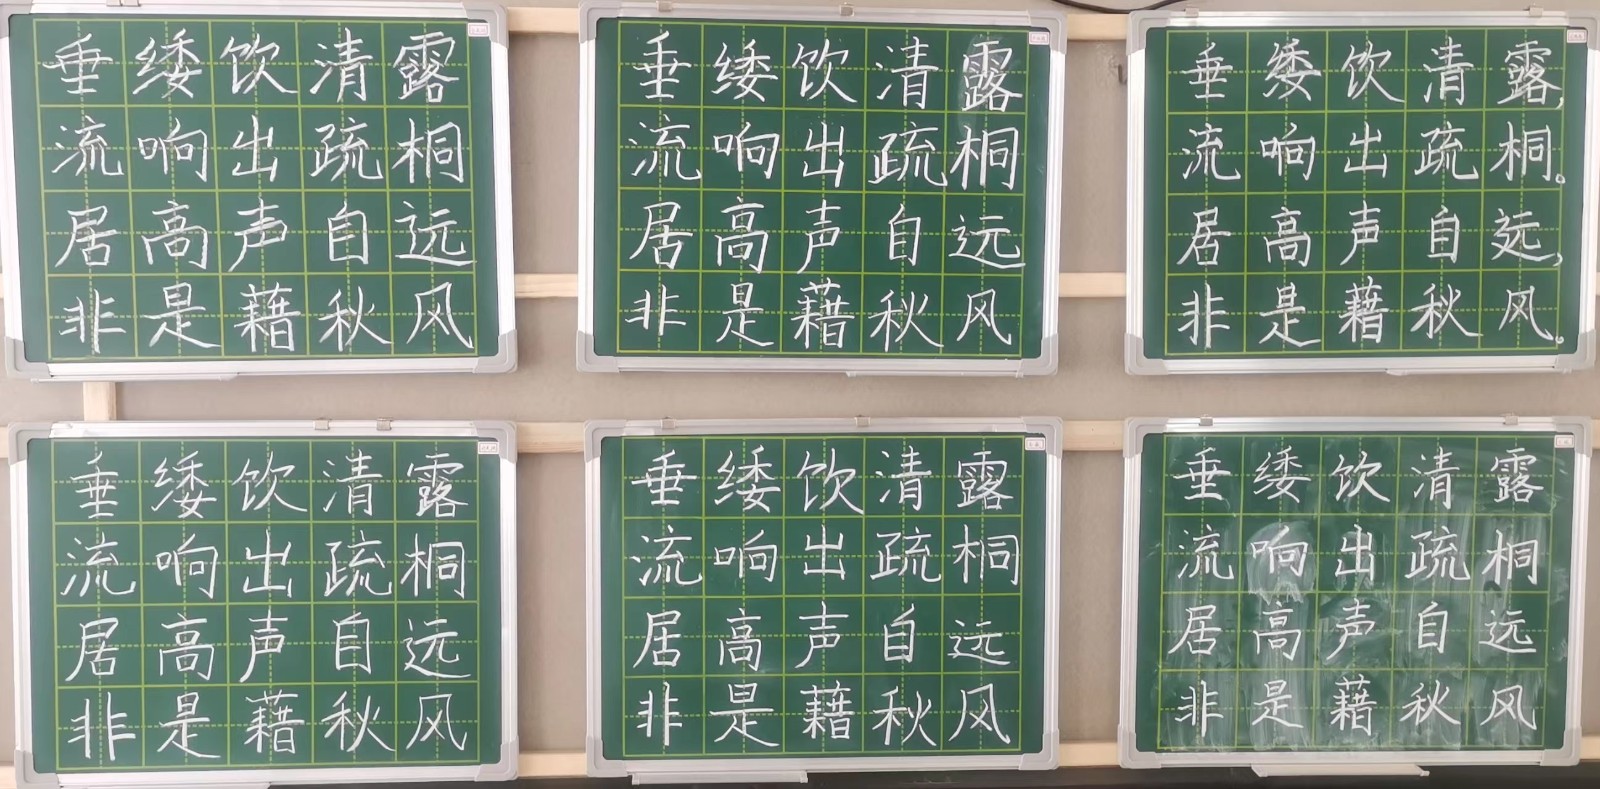 垂緌饮清露
流响出疏桐
居高声自远
非是藉秋风
垂緌饮清露
流响出疏桐
居高声自远
非是藉秋风
垂緌饮清露，
流响出疏桐。
居高声自远，
非是藉秋风。
垂緌饮清露
流响出疏桐
居高声自远
非是藉秋风
垂緌饮清露
流响出疏桐
居高声自远
非是藉秋风
垂緌饮清露
流响出疏桐
居高声自远
非是藉秋风